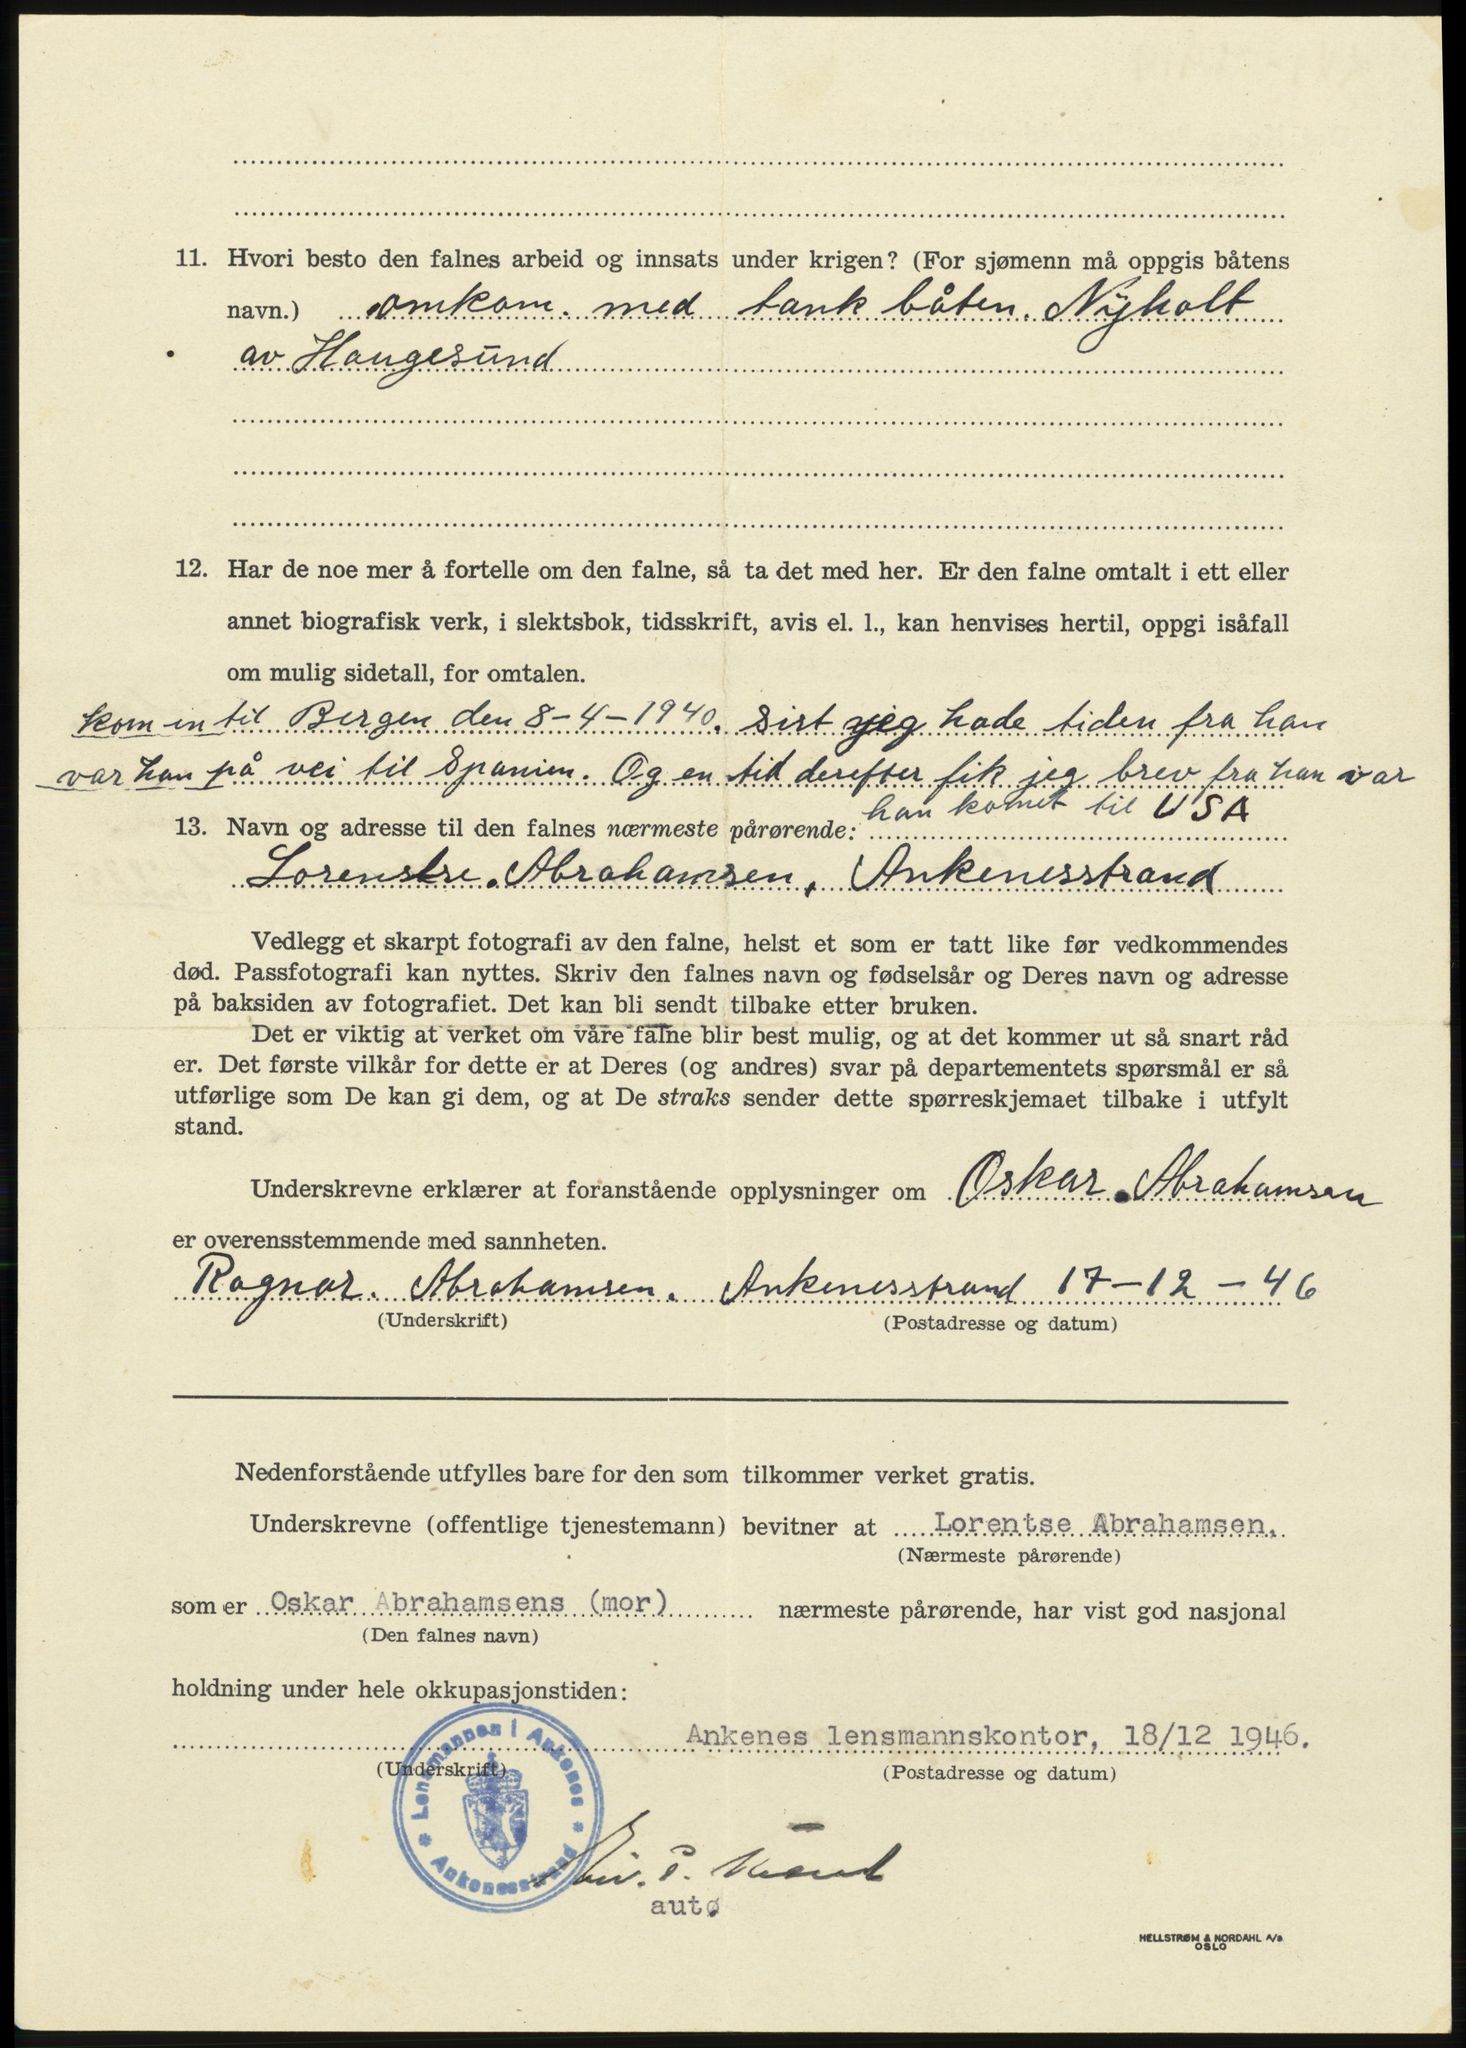 11. Hvori besto den falnes arbeid og innsats under krigen? (For sjømenn må oppgis båtens
navn.) omkom. med tank båten. Nyholt
av Haugesund
12. Har de noe mer å fortelle om den falne, så ta det med her. Er den falne omtalt i ett eller
annet biografisk verk, i slektsbok, tidsskrift, avis el. l., kan henvises hertil, oppgi isåfall
om mulig sidetall, for omtalen.
kom in til Bergen den 8-4-1940. Sist jeg hade tiden fra han
var han på vei til Spanien. Og en tid derefter fik jeg brev fra han var
han komet til USA
13. Navn og adresse til den falnes nærmeste pårørende:
Lorenstse. Abrahamsen, Ankenesstrand
Vedlegg et skarpt fotografi av den falne, helst et som er tatt like før vedkommendes
død. Passfotografi kan nyttes. Skriv den falnes navn og fødselsår og Deres navn og adresse
på baksiden av fotografiet. Det kan bli sendt tilbake etter bruken.
Det er viktig at verket om våre falne blir best mulig, og at det kommer ut så snart råd
er. Det første vilkår for dette er at Deres (og andres) svar på departementets spørsmål er så
utførlige som De kan gi dem, og at De straks sender dette spørreskjemaet tilbake i utfylt
stand.
Underskrevne erklærer at foranstående opplysninger om Oskar. Abrahamsen
er overensstemmende med sannheten.
Ragnar. Abrahamsen. Ankenesstrand 17-12-46
(Underskrift) (Postadresse og datum)
Nedenforstående utfylles bare for den som tilkommer verket gratis.
Underskrevne (offentlige tjenestemann) bevitner at Lorentse Abrahamsen.
(Nærmeste pårørende)
som er Oskar Abrahamsens (mor) nærmeste pårørende, har vist god nasjonal
(Den falnes navn)
holdning under hele okkupasjonstiden:
Ankenes lensmannskontor, 18/12 1946.
(Underskrift) (Postadresse og datum)
Lensmannen i Ankenes * Ankenesstrand *
autø
HELLSTRØM & NORDAHL A/S
OSLO